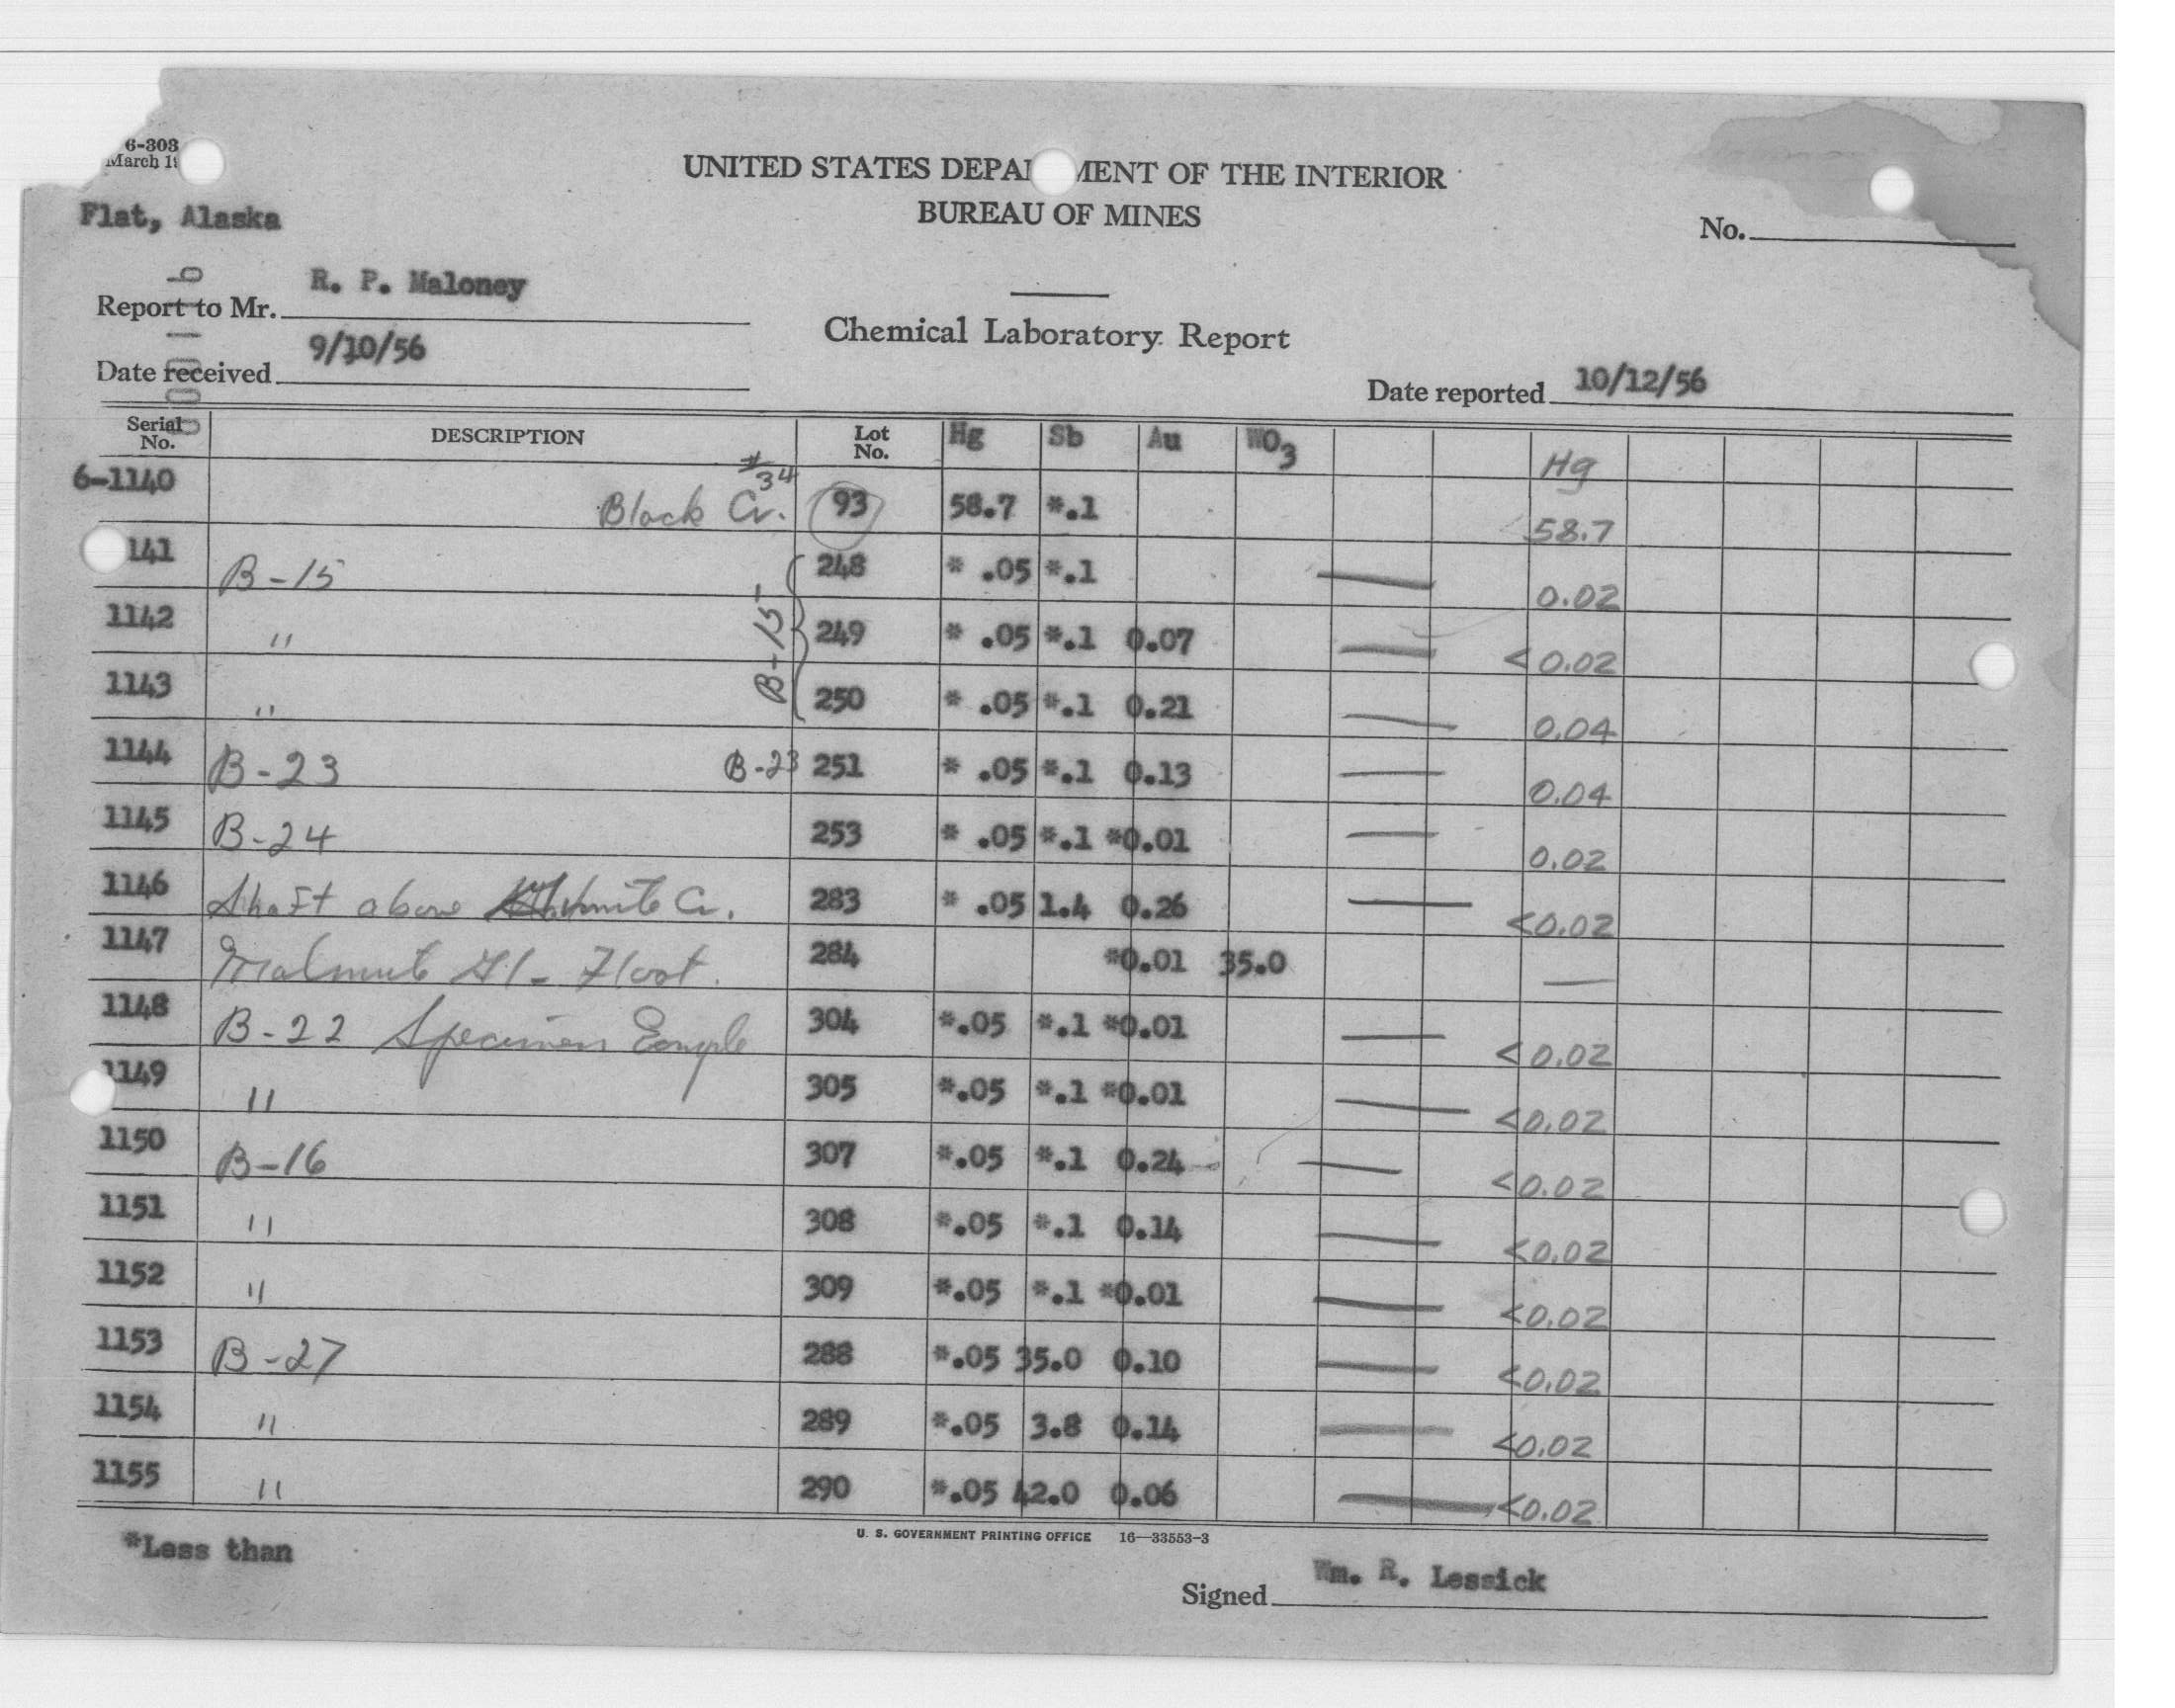 6-303
March 1
UNITED STATES DEPA MENT OF THE INTERIOR
BUREAU OF MINES
Flat, Alaska
No.
Report to Mr. R. P. Maloney
Chemical Laboratory Report
Date received 9/10/56
Date reported 10/12/56
Serial No. DESCRIPTION Lot No. Hg Sb Au WO3 Hg
6-1140 Black Cr. #34 93 58.7 *.1 58.7
141 B-15 248 * .05 *.1 0.02
1142 " 249 * .05 *.1 0.07 <0.02
B-15
1143 " 250 * .05 *.1 0.21 0.04
1144 B-23 B-23 251 * .05 *.1 0.13 0.04
1145 B-24 253 * .05 *.1 *0.01 0.02
1146 Shaft above Cr. 283 * .05 1.4 0.26 <0.02
1147 Malmute Gl - Float. 284 *0.01 35.0 —
1148 B-22 Specimen 304 *.05 *.1 *0.01 <0.02
1149 " 305 *.05 *.1 *0.01 <0.02
1150 B-16 307 *.05 *.1 0.24 <0.02
1151 " 308 *.05 *.1 0.14 <0.02
1152 " 309 *.05 *.1 *0.01 <0.02
1153 B-27 288 *.05 35.0 0.10 <0.02
1154 " 289 *.05 3.8 0.14 <0.02
1155 " 290 *.05 42.0 0.06 <0.02
*Less than
U. S. GOVERNMENT PRINTING OFFICE 16—33553-3
Signed Wm. R. Lessick